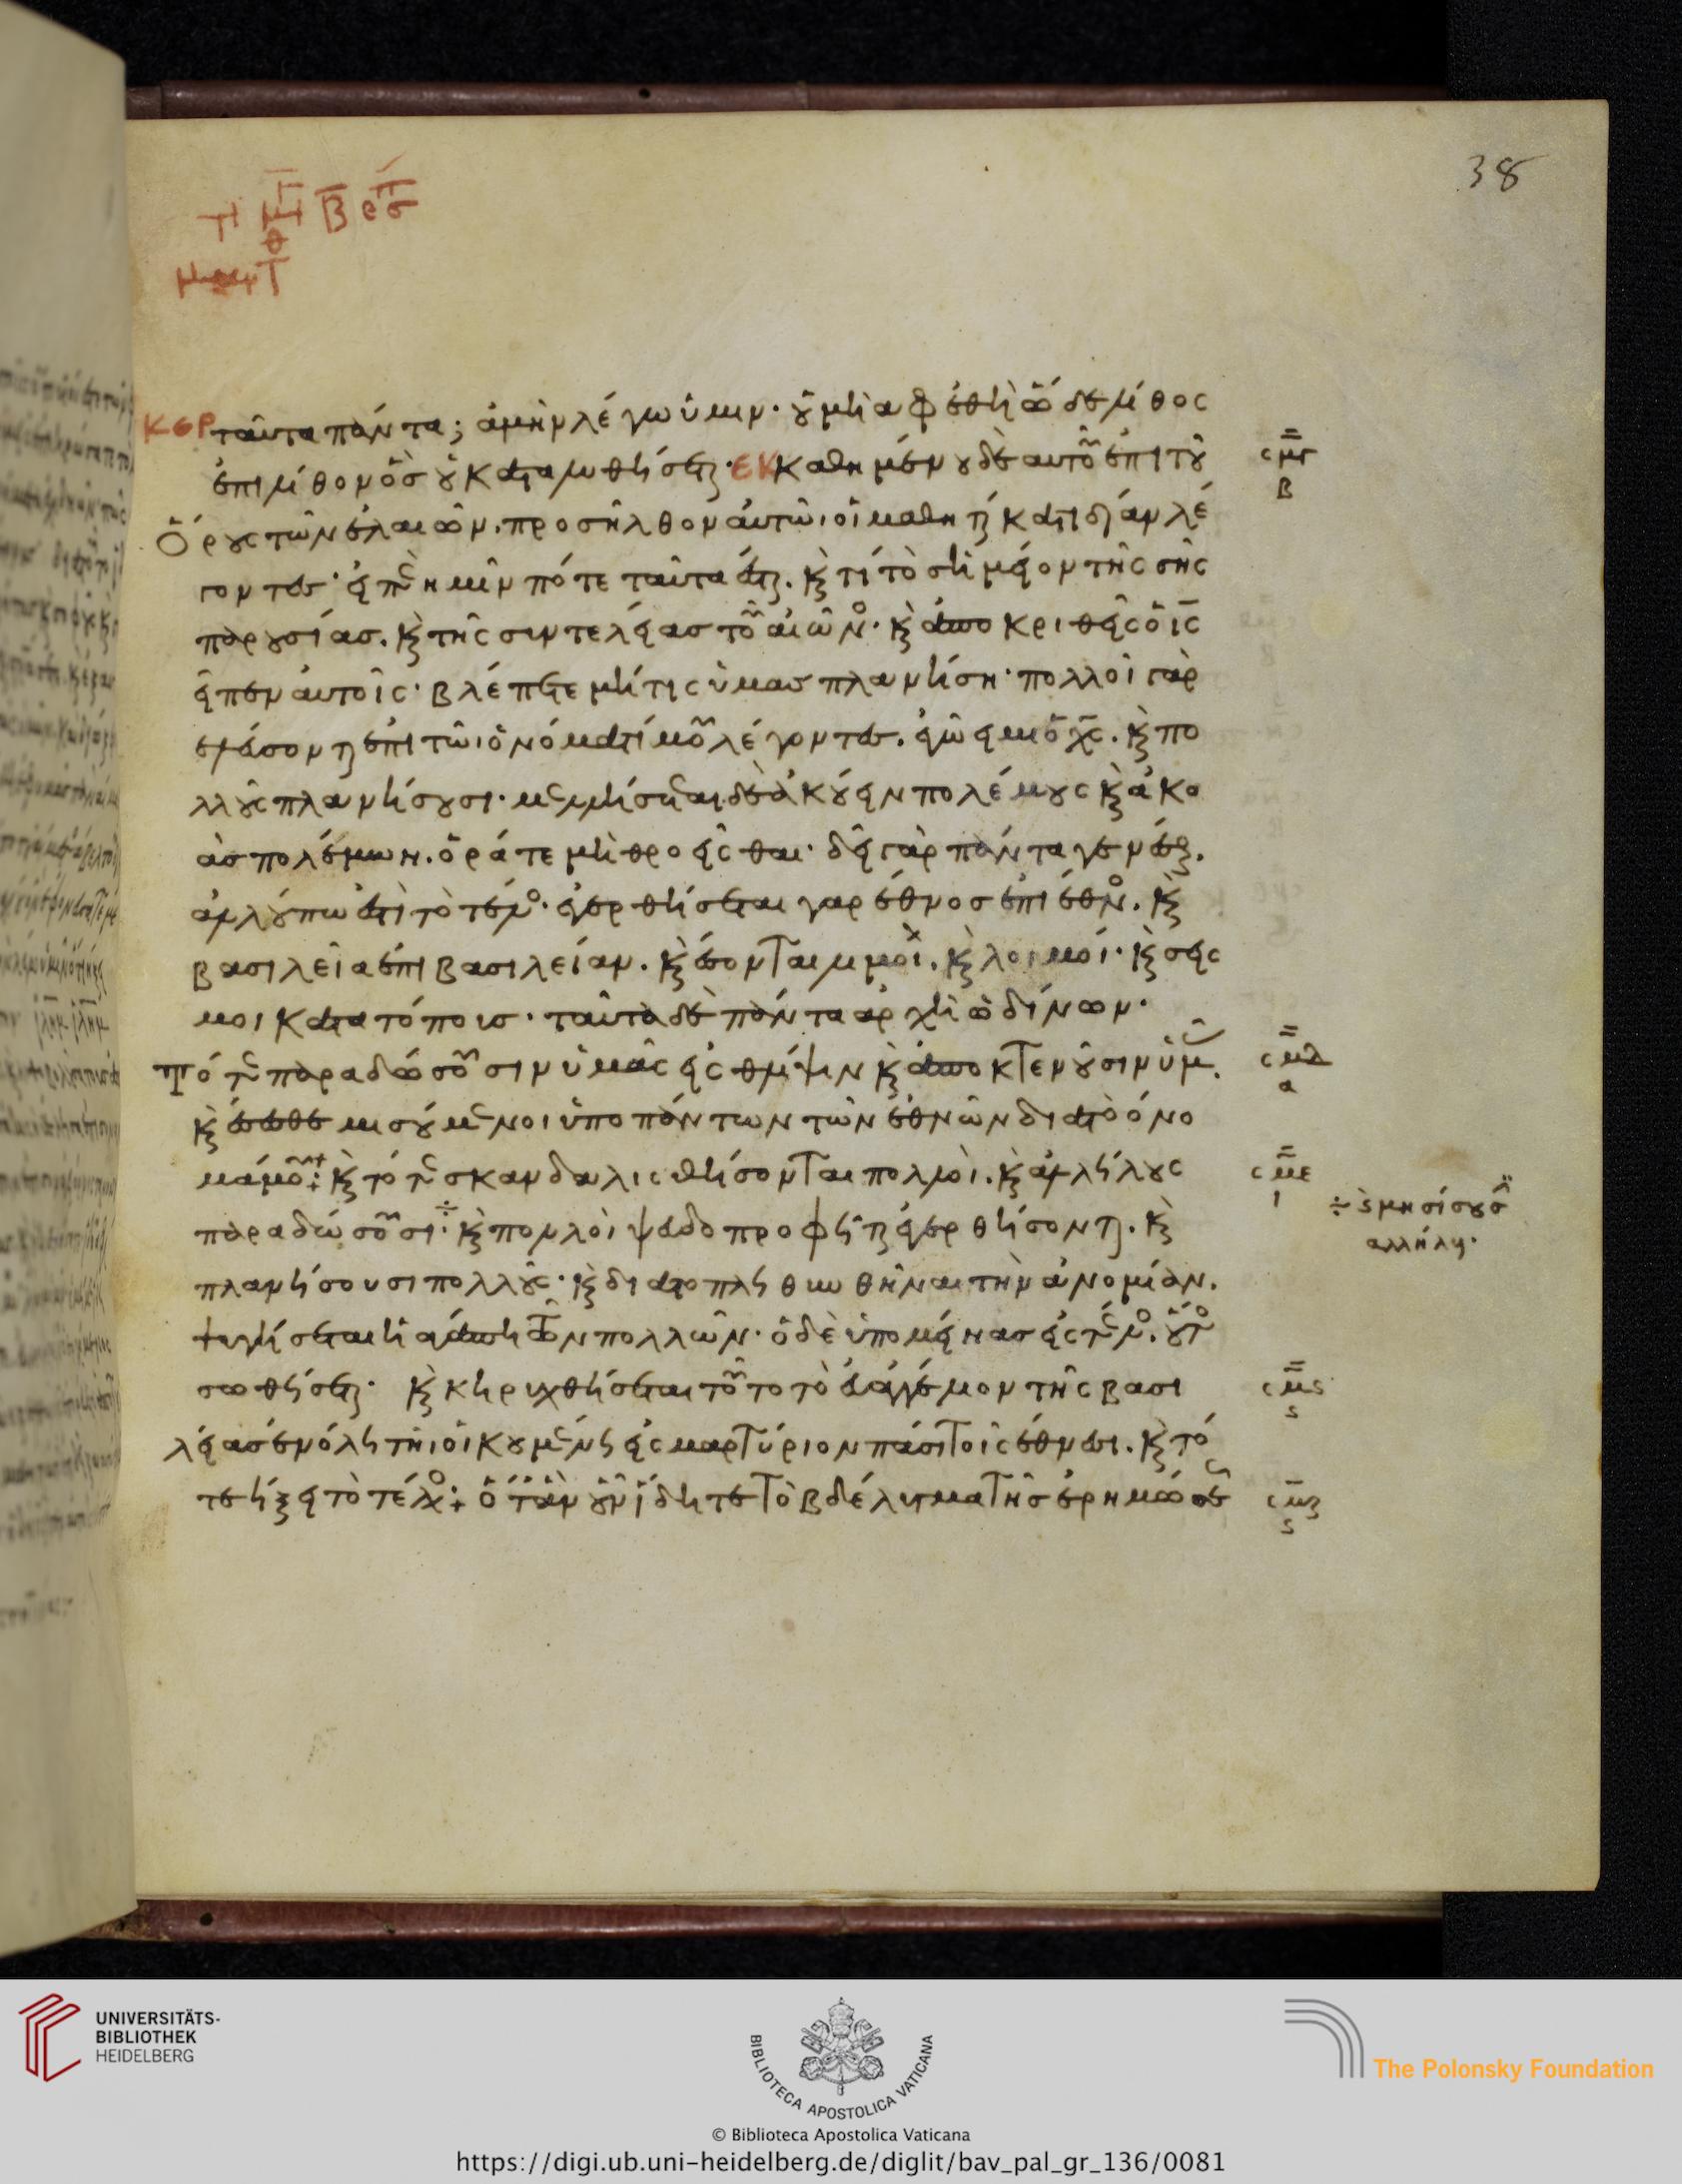 38
ταῦτα πάντα; ἀμὴν λέγω ὑμιν· οὐ μὴ ἀφεθῆ ὧδε λίθος
ἐπι λίθον ὃσ οὐ καταλυθήσεται· ΕΚ καθημένου δὲ αυτοῦ ἐπι τοῦ
ὄρους τῶν ἐλαιῶν. προσῆλθον αὐτῶι οἱ μαθηταὶ κατιδίαν λέ
γοντεσ· εἰπὲ ημῖν πότε ταῦτα ἔσται. κ τί τὸ σημεῖον τῆς σῆς
παρουσίασ. κ τῆς συντελείασ τοῦ αἰῶνο· κ ἀποκριθεὶς ὁ ις
εἶπεν αὐτοῖς· βλέπετε μή τις ὑμασ πλανήση· πολλοὶ γὰρ
ἐλεύσονται ἐπὶ τῶι ὀνόματί μου λέγοντεσ. ἐγώ εἰμι ὁ χς. κ πο
λλοὺς πλανήσουσι· μελλήσεται δὲ ἀκούειν πολέμους κ ἀκο
ὰσ πολέμων. ὁράτε μὴ θροεῖσθαι· δεῖ γὰρ πάντα γενέσθαι.
ἀλλ οὔπω ἐστὶ τὸ τέλο· ἐγερθήσεται γαρ ἔθνοσ ἐπὶ ἔθνο. κ
βασιλεῖα ἐπι βασιλείαν. κ ἔσονται λιμοὶ. κ λοιμοί· κ σεις
μοι κατα τόπουσ· ταῦτα δὲ πάντα αρχὴ ὠδίνων·
Τότε παραδώσουσιν ὑμᾶς εἰς θλίψιν κ ἀποκτενοῦσιν ὑμ.
κ ἔσεσθε μισούμενοι ὑπο πάντων τῶν ἐθνῶν διατὸ όνο
μά μου κ τότε σκανδαλισθήσονται πολλοὶ. κ ἀλλήλους
παραδώσουσι· κ πολλοὶ ψευδοπροφῆται ἐγερθήσονται. κ
πλανήσουσι πολλοὺς· κ διατο πληθυνθῆναι τὴν ἀνομίαν.
ψυγήσεται ἡ αγάπη τῶν πολλῶν· ὁ δὲ ὑπομείνασ εἰς τέλο. οὗτο
σωθήσεται· κ κηρυχθήσεται τοῦτο τὸ εὐαγγέλιον τῆς βασι
λείασ ἐν ὅλη τῆι οἰκουμένη εἰς μαρτύριον πάσι τοῖς ἔθνεσι. κ τό
τε ήξει τὸ τέλο· ὅταν οὖν ἴδητε τὸ βδέλυγμα τῆσ ἐρημώσε
ς̅μ̅γ̅
β
ς̅μ̅δ̅
α
ς̅μ̅ε̅
ι
÷ μησίσουσ
αλλήλου·
ς̅μ̅ς̅
ς
ς̅μ̅ζ̅
ς
UNIVERSITÄTS-
BIBLIOTHEK
HEIDELBERG
BIBLIOTECA APOSTOLICA VATICANA
The Polonsky Foundation
© Biblioteca Apostolica Vaticana
https://digi.ub.uni-heidelberg.de/diglit/bav_pal_gr_136/0081